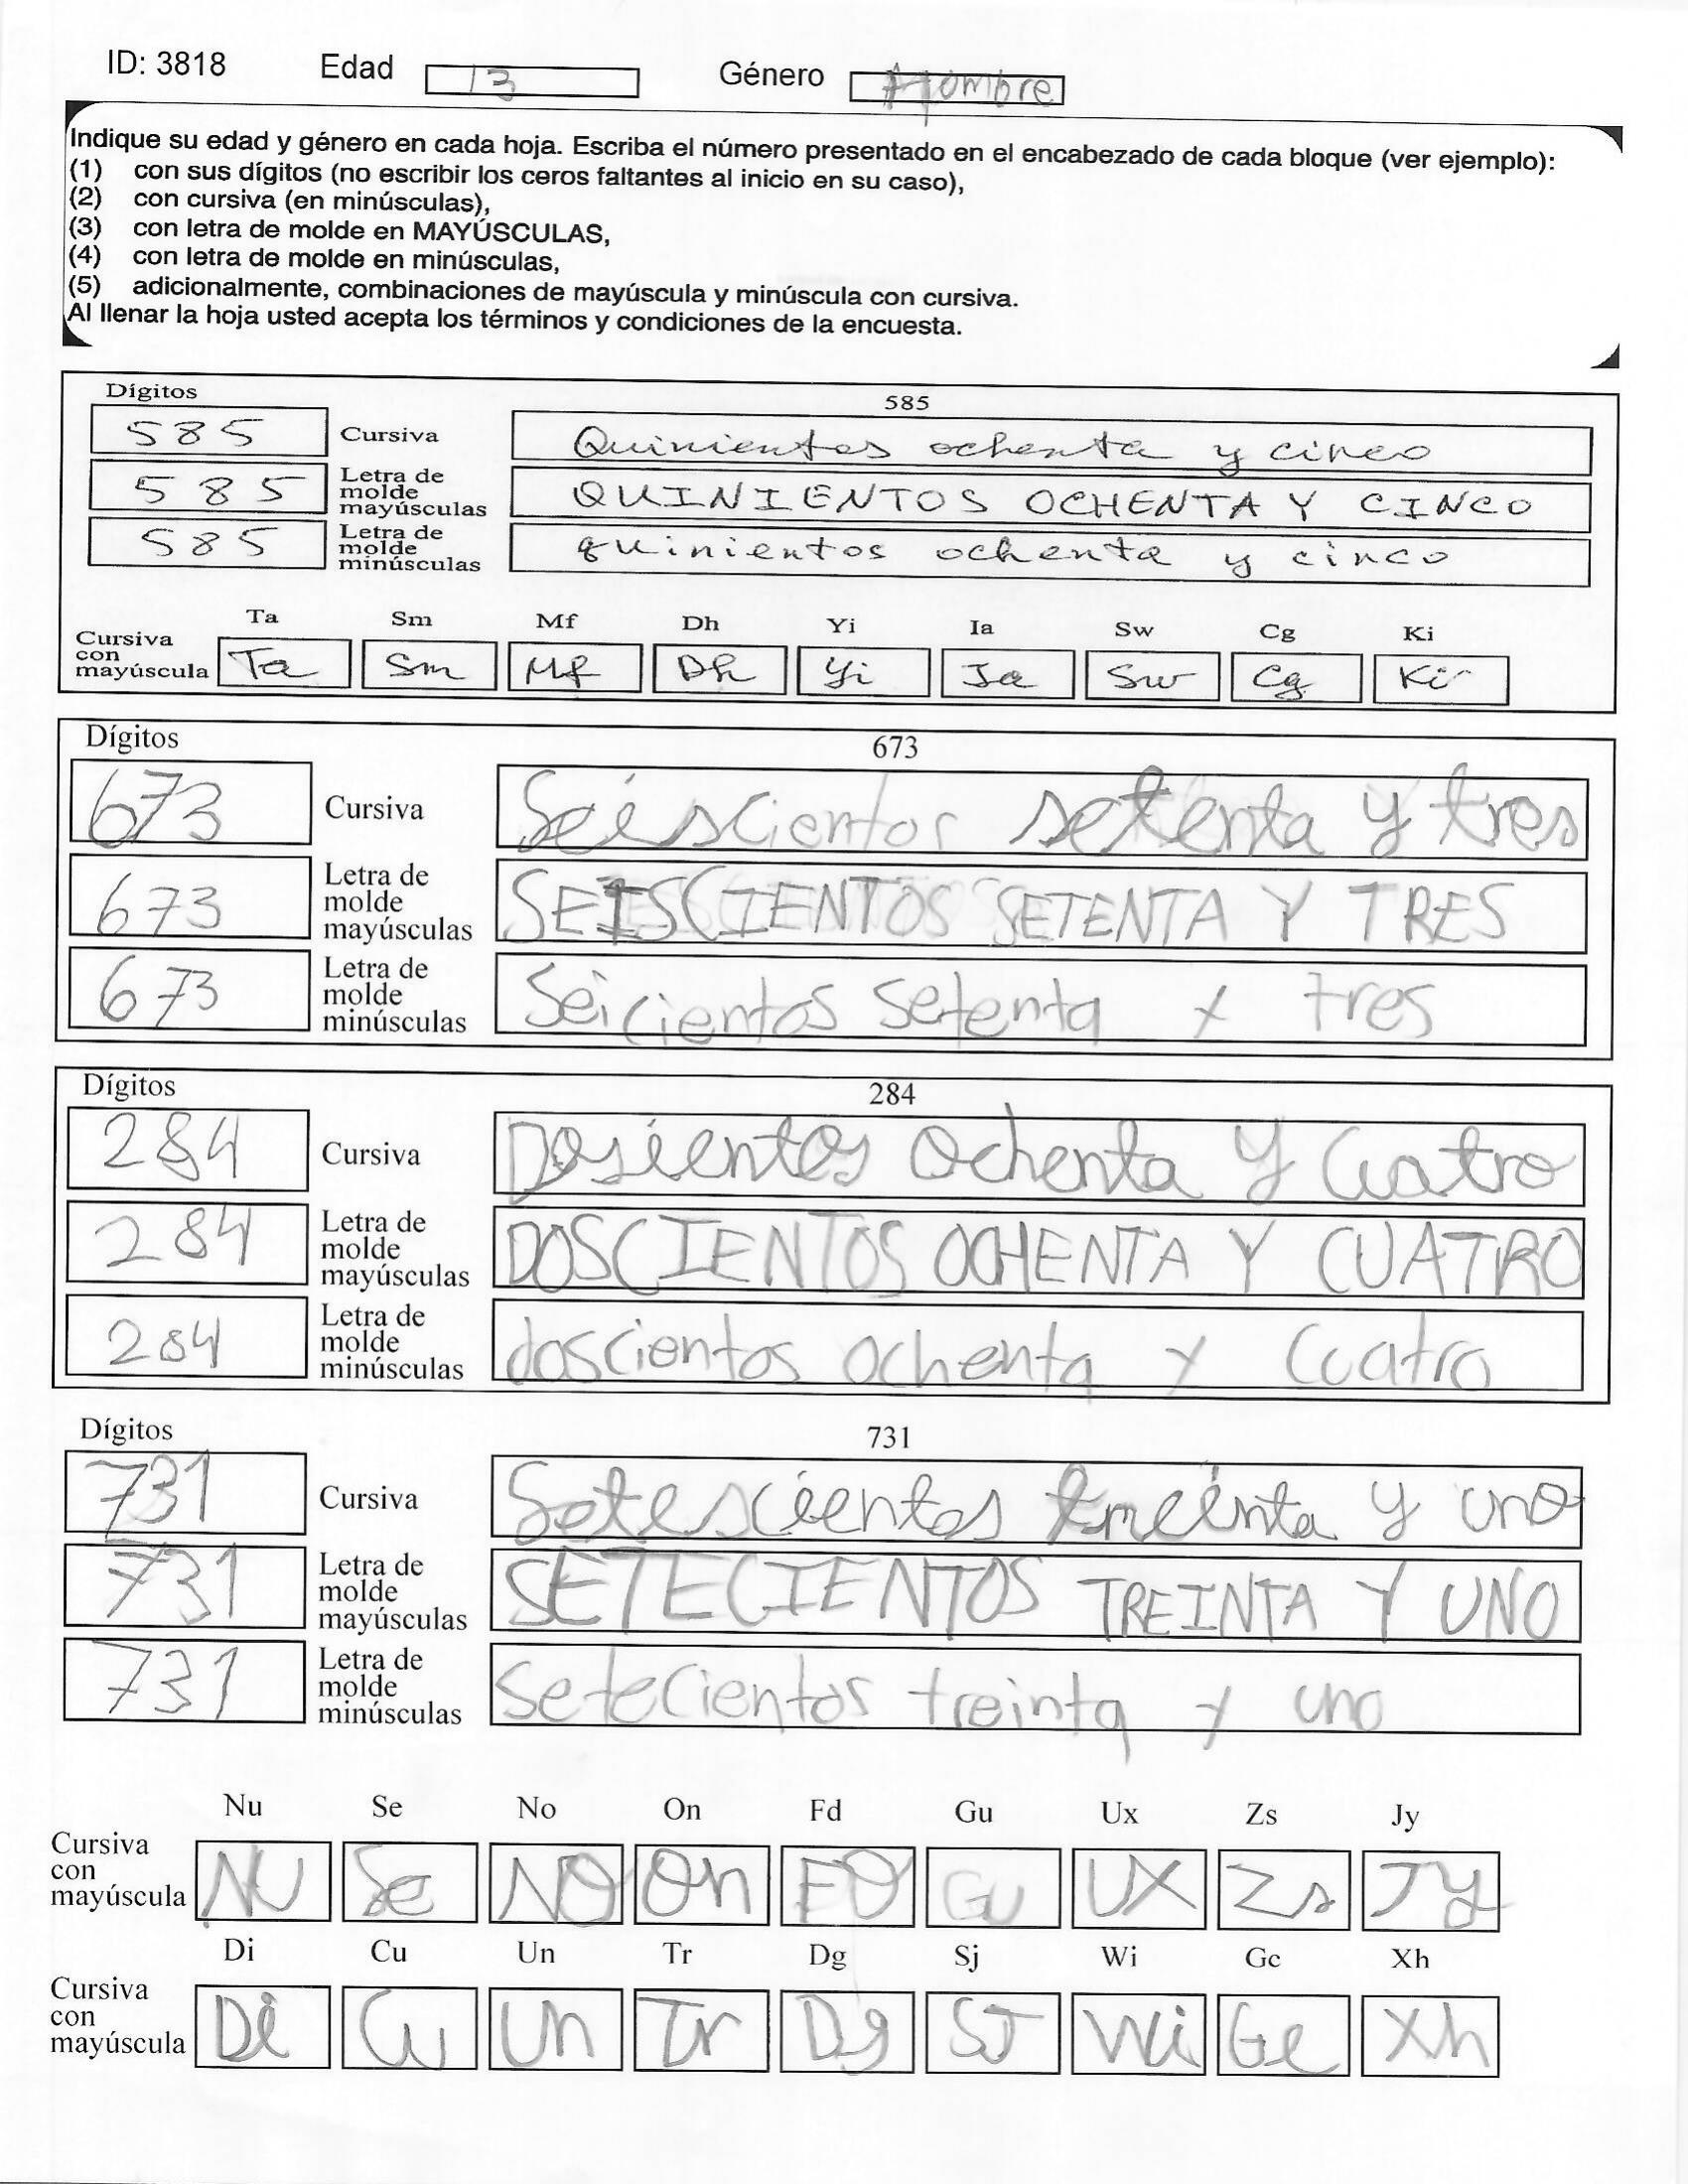 ID: 3818 Edad 13 Género Hombre
Indique su edad y género en cada hoja. Escriba el número presentado en el encabezado de cada bloque (ver ejemplo):
(1) con sus dígitos (no escribir los ceros faltantes al inicio en su caso),
(2) con cursiva (en minúsculas),
(3) con letra de molde en MAYÚSCULAS,
(4) con letra de molde en minúsculas,
(5) adicionalmente, combinaciones de mayúscula y minúscula con cursiva.
Al llenar la hoja usted acepta los términos y condiciones de la encuesta.
Dígitos 585
585 Cursiva Quinientos ochenta y cinco
585 Letra de molde mayúsculas QUINIENTOS OCHENTA Y CINCO
585 Letra de molde minúsculas quinientos ochenta y cinco
Ta Sm Mf Dh Yi Ia Sw Cg Ki
Cursiva con mayúscula Ta Sm Mf Dh Yi Ia Sw Cg Ki
Dígitos 673
673 Cursiva Seiscientos setenta y tres
673 Letra de molde mayúsculas SEISCIENTOS SETENTA Y TRES
673 Letra de molde minúsculas Seicientos setenta y tres
Dígitos 284
284 Cursiva Dosientos Ochenta Y Cuatro
284 Letra de molde mayúsculas DOSCIENTOS OCHENTA Y CUATRO
284 Letra de molde minúsculas doscientos ochenta y Cuatro
Dígitos 731
731 Cursiva Setescientos treinta y uno
731 Letra de molde mayúsculas SETECIENTOS TREINTA Y UNO
731 Letra de molde minúsculas Setecientos treinta y uno
Nu Se No On Fd Gu Ux Zs Jy
Cursiva con mayúscula NU Se NO On FD GU UX Zs Jy
Di Cu Un Tr Dg Sj Wi Gc Xh
Cursiva con mayúscula Di Cu Un Tr Dg SJ Wi Ge Xh